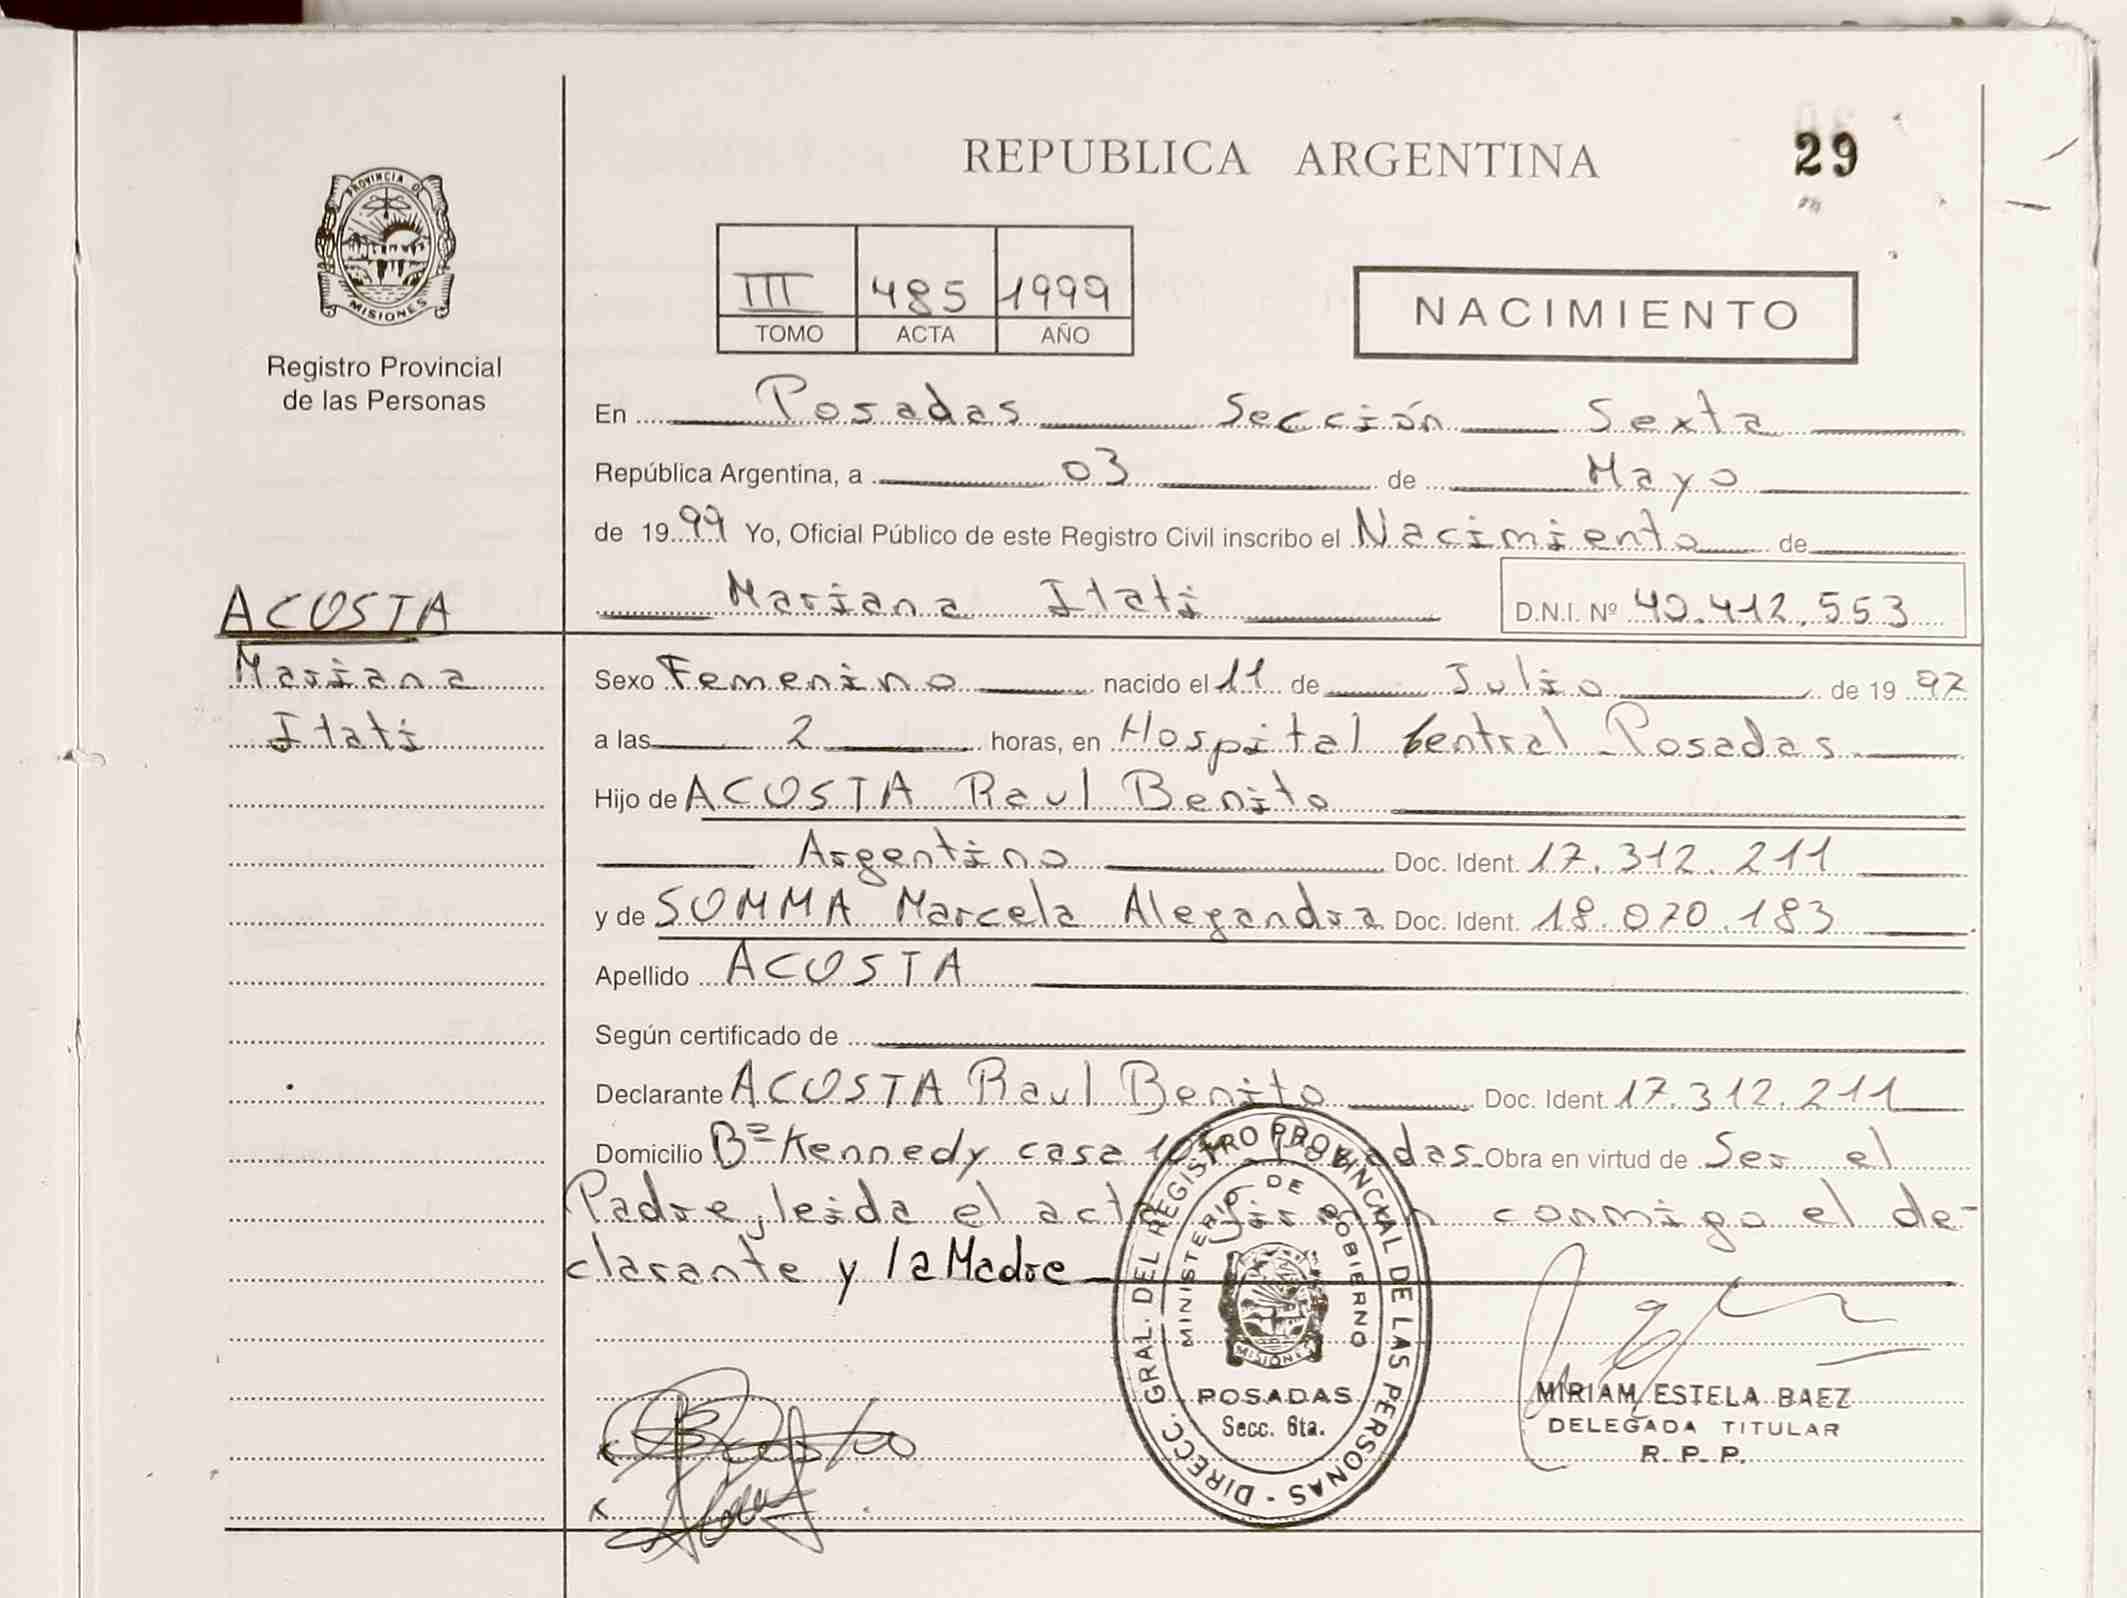 REPUBLICA ARGENTINA
29
PROVINCIA DE
MISIONES
Registro Provincial
de las Personas
III 485 1999
TOMO ACTA AÑO
NACIMIENTO
En Posadas Sección Sexta
República Argentina, a 03 de Mayo
de 1999 Yo, Oficial Público de este Registro Civil inscribo el Nacimiento de
ACOSTA
Mariana Itati D.N.I. Nº 40.412.553
Mariana
Itati
Sexo Femenino nacido el 11 de Julio de 1997
a las 2 horas, en Hospital Central Posadas
Hijo de ACOSTA Raul Benito
Argentino Doc. Ident. 17.312.211
y de SOMMA Marcela Alegandra Doc. Ident. 18.070.183
Apellido ACOSTA
Según certificado de
Declarante ACOSTA Raul Benito Doc. Ident. 17.312.211
Domicilio Bº Kennedy casa Posadas Obra en virtud de Ser el
Padre, leida el acta firman conmigo el de-
clarante y la Madre
DIRECC. GRAL. DEL REGISTRO PROVINCIAL DE LAS PERSONAS
MINISTERIO DE GOBIERNO
MISIONES
POSADAS
Secc. 6ta.
MIRIAM ESTELA BAEZ
DELEGADA TITULAR
R. P. P.